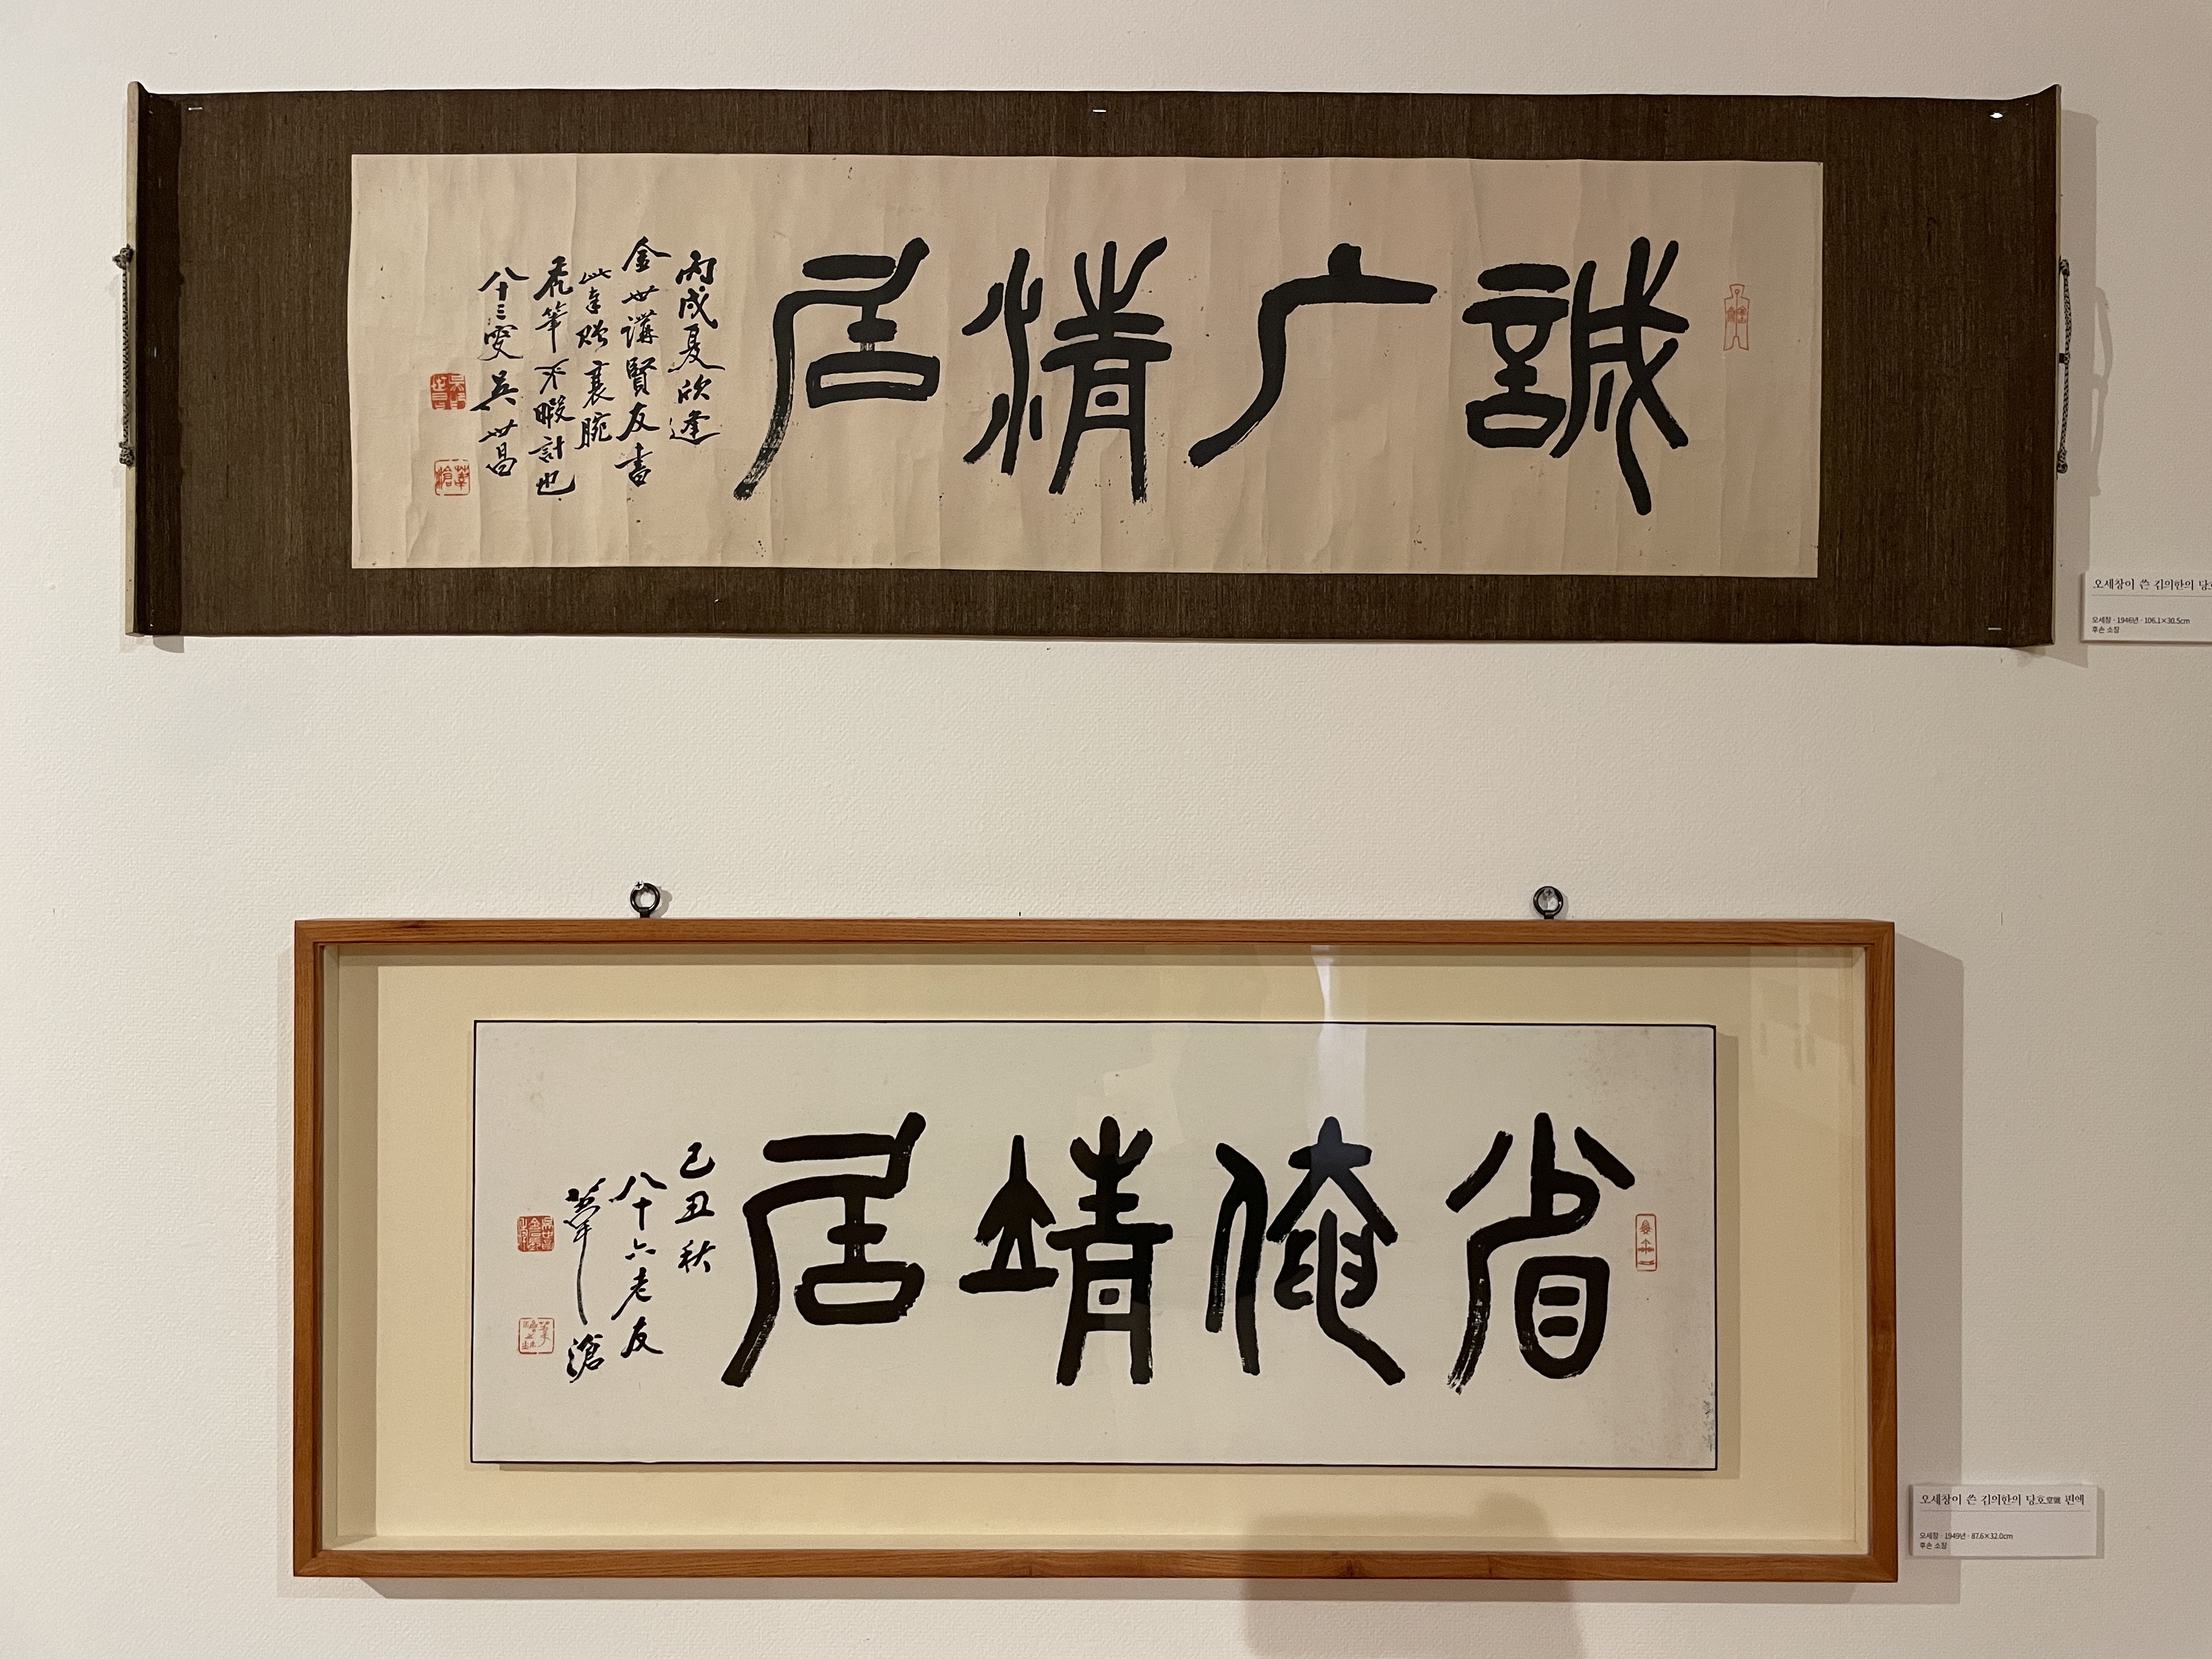 誠广情居
丙戌夏欣逢
金世講賢友書
此幸贈衰腕
禿筆不暇計也
八十三叟 吳世昌
오세창이 쓴 김의한의 당호
오세창 · 1946년 · 106.1×30.5cm
후손 소장
省俺靖居
己丑秋
八十六老友
葦滄
오세창이 쓴 김의한의 당호堂號 편액
오세창 · 1949년 · 87.6×32.0cm
후손 소장